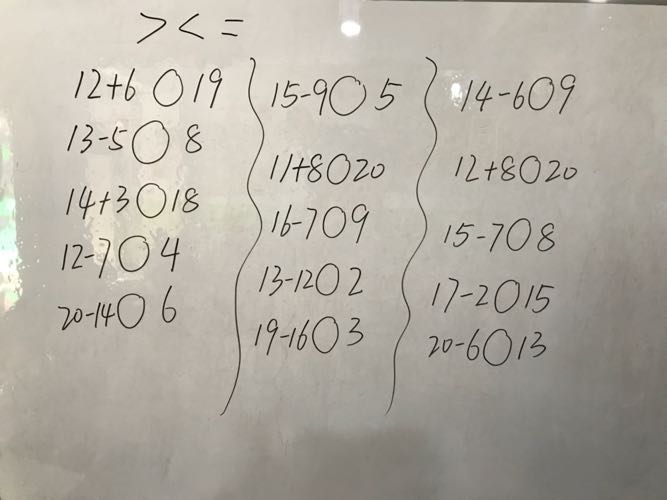 > < =
12+6 ○ 19
13-5 ○ 8
14+3 ○ 18
12-7 ○ 4
20-14 ○ 6
15-9 ○ 5
11+8 ○ 20
16-7 ○ 9
13-12 ○ 2
19-16 ○ 3
14-6 ○ 9
12+8 ○ 20
15-7 ○ 8
17-2 ○ 15
20-6 ○ 13